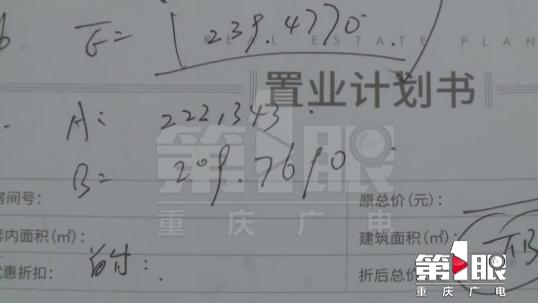 E= 239.4770
REAL ESTATE PLAN
置业计划书
A: 222.1343
B= 209.7690
第1眼
重庆广电
房间号: 原总价(元):
套内面积(㎡): 建筑面积(㎡):
优惠折扣: 首付: 折后总价
第1眼
重庆广电